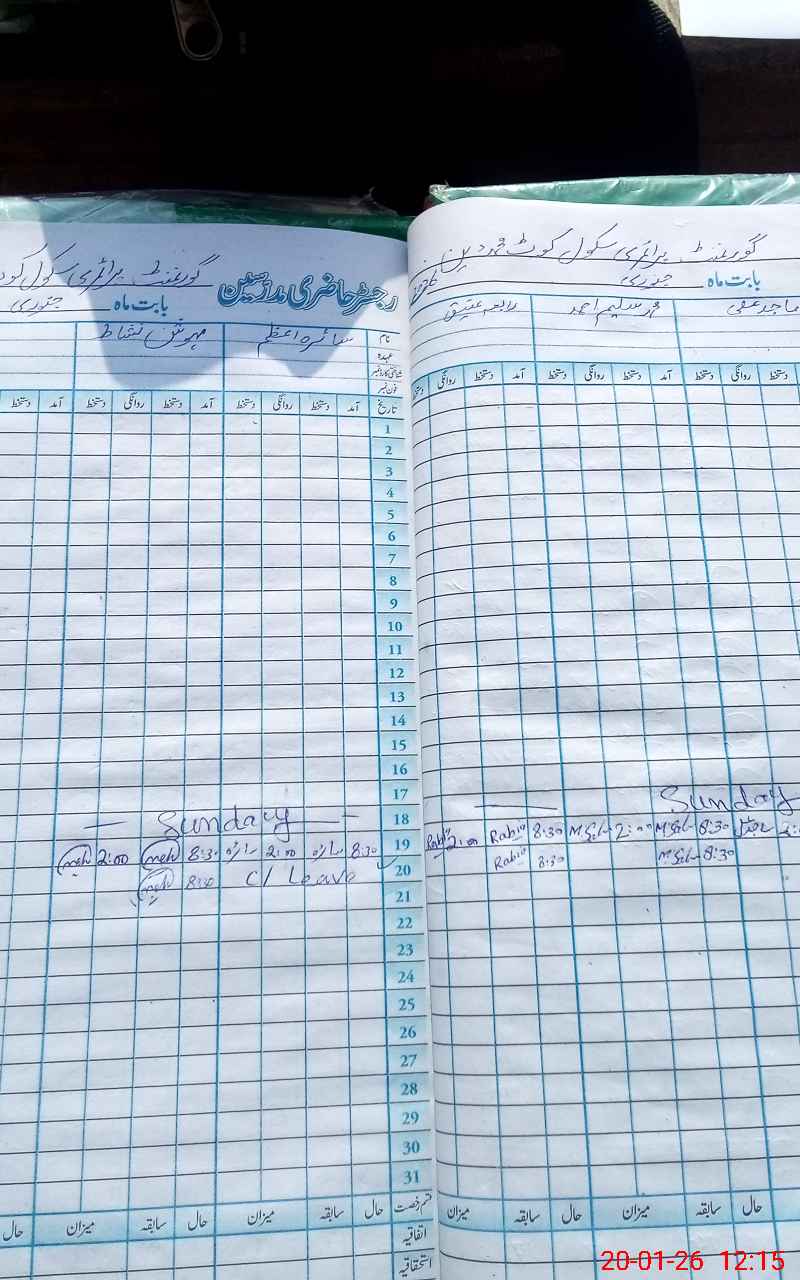 گورنمنٹ پرائمری سکول کوٹ
رجسٹر حاضری مدرسین
بابت ماہ جنوری
نام سائرہ اعظم مہوش نشاط
عہدہ
شناختی کارڈ نمبر
فون نمبر
تاریخ آمد دستخط روانگی دستخط آمد دستخط روانگی دستخط آمد دستخط
1
2
3
4
5
6
7
8
9
10
11
12
13
14
15
16
17
18 — Sunday —
19 8:30 سائرہ 2:00 سائرہ 8:30 meh 2:00 meh
20 C/ Leave 8:30 meh
21
22
23
24
25
26
27
28
29
30
31
قسم رخصت حال سابقہ میزان حال سابقہ میزان حال
اتفاقیہ
استحقاقیہ
گورنمنٹ پرائمری سکول کوٹ محمد دین
بابت ماہ جنوری 2026
محمد سلیم احمد رابعہ عتیق
دستخط روانگی دستخط آمد دستخط روانگی دستخط آمد دستخط روانگی
— Sunday
2:00 Rabia 8:30 Rabia 2:00 8:30
8:30 Rabia 8:30
حال سابقہ میزان حال سابقہ میزان
20-01-26 12:15